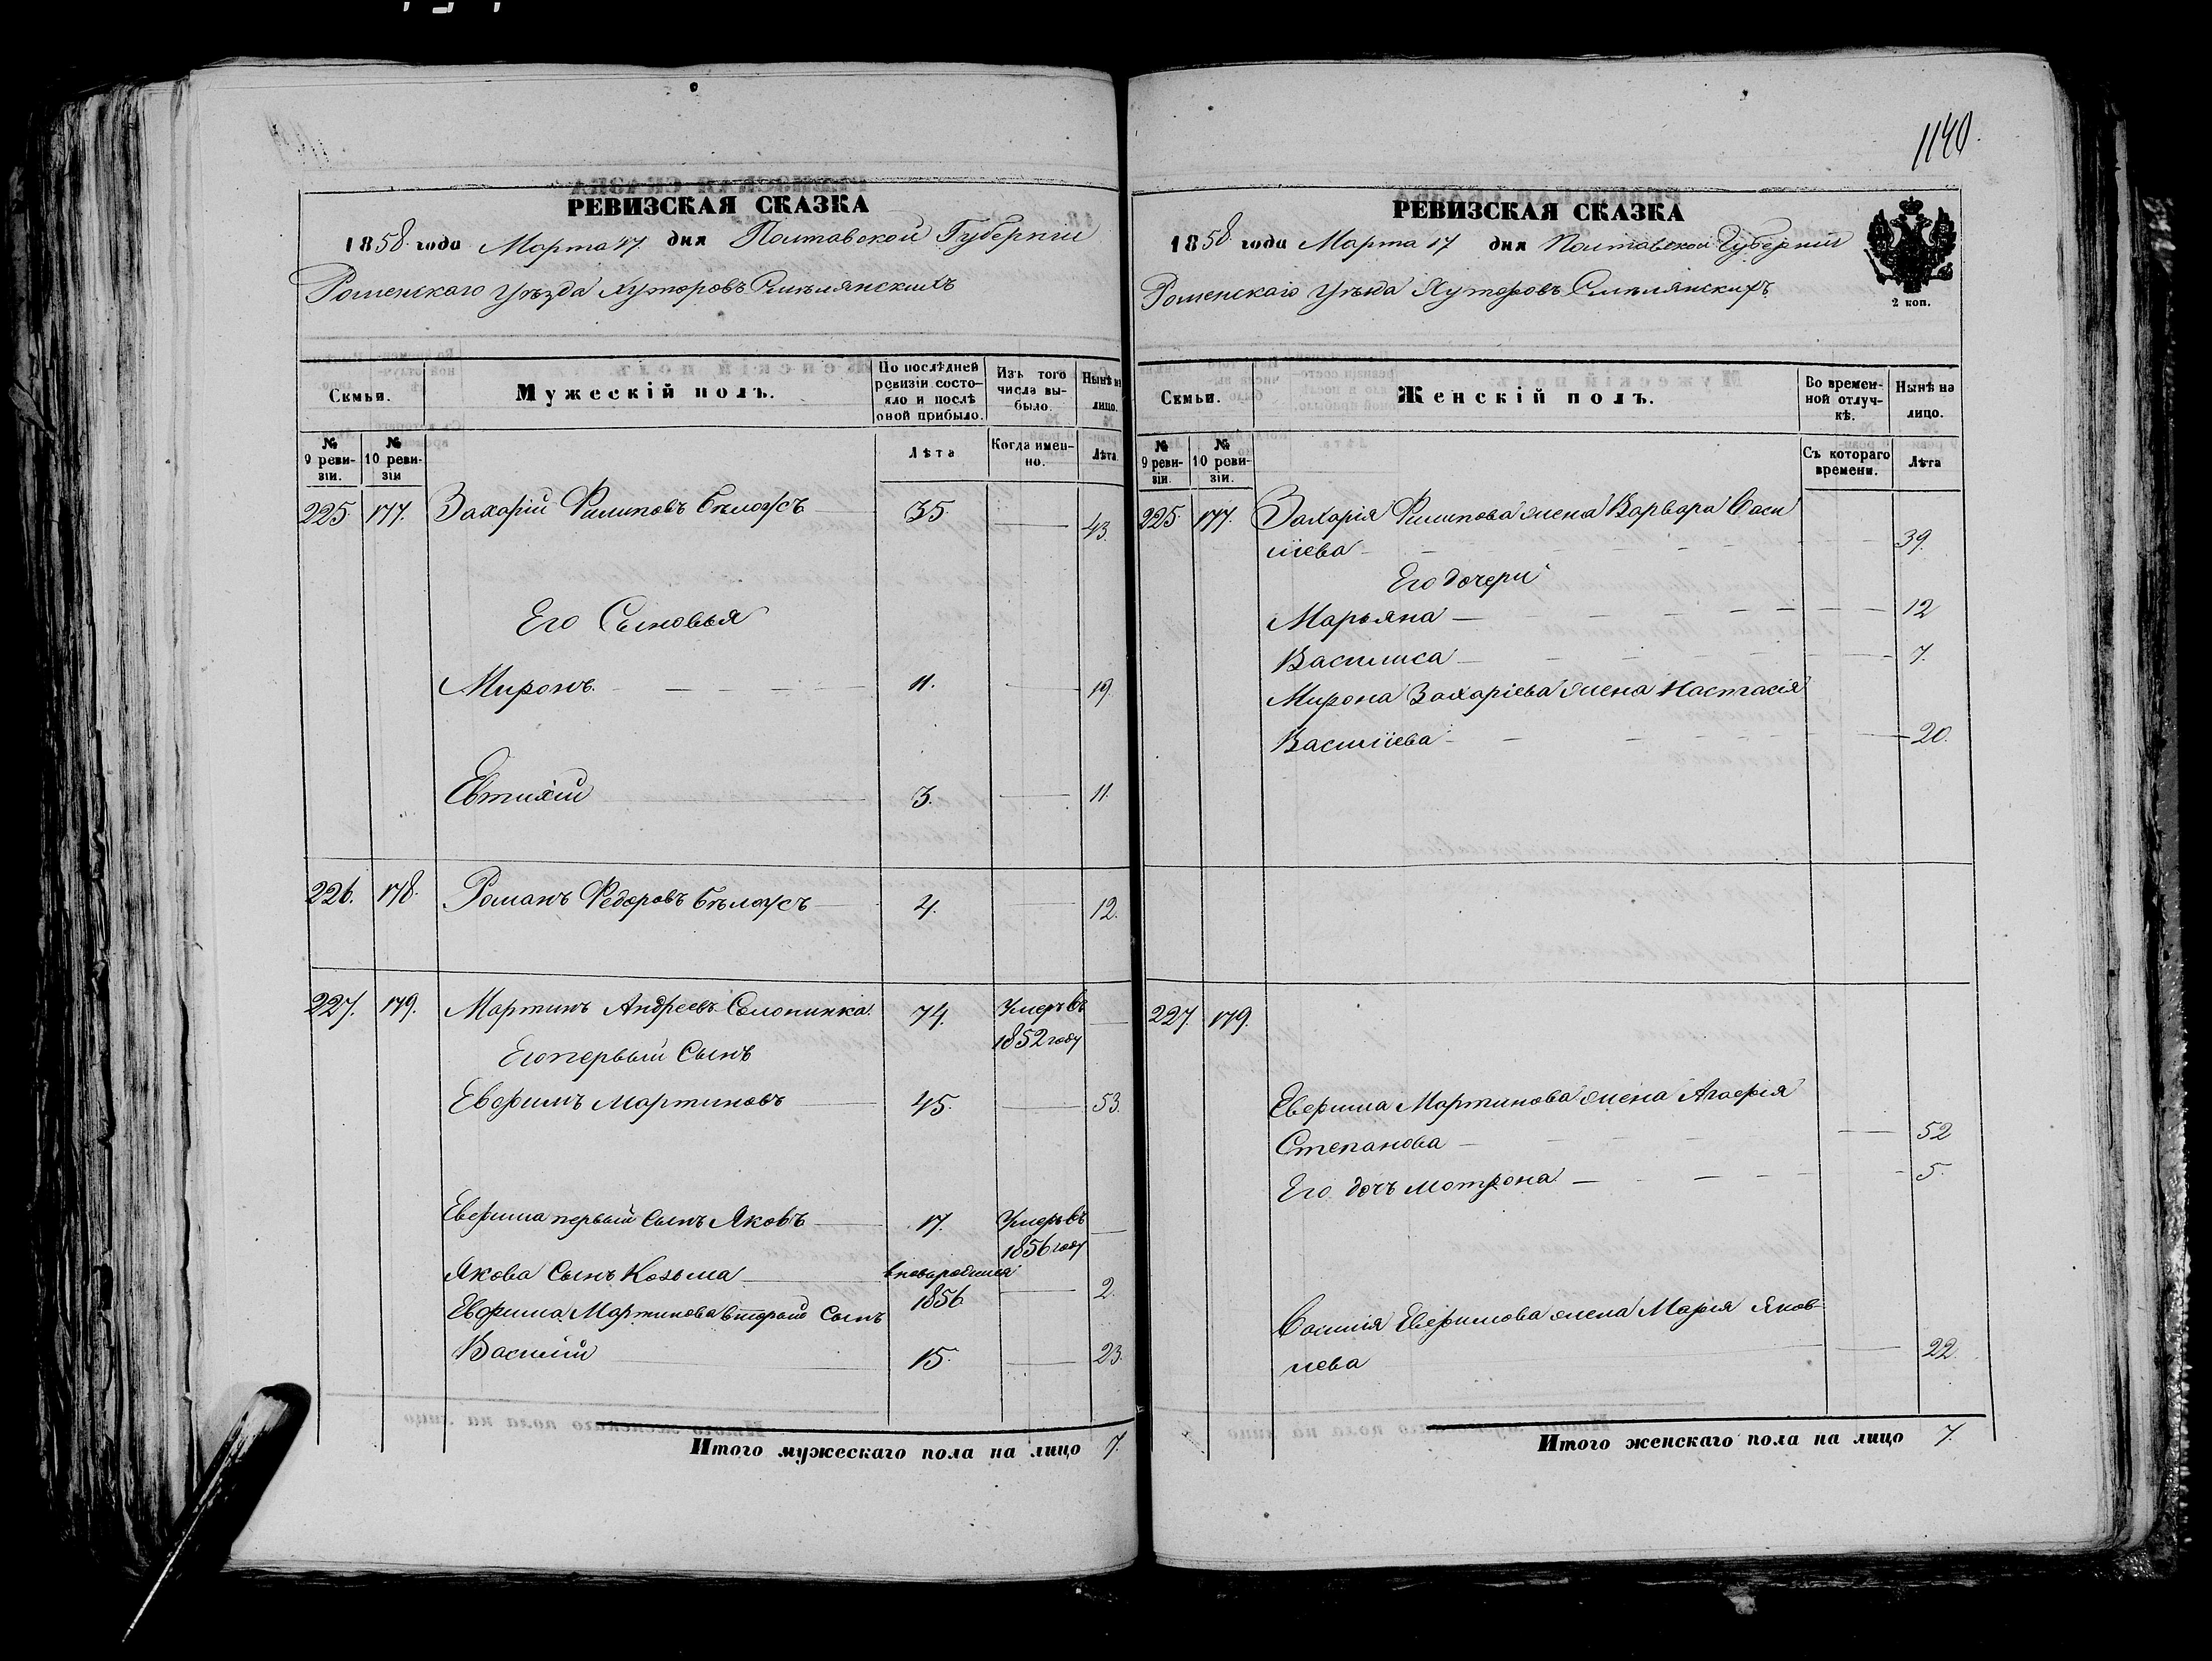 РЕВИЗСКАЯ СКАЗКА
1858 года Марта 17 дня Полтавской Губерніи
Роменскаго уѣзда Хуторовъ Смѣлянскихъ
Семьи.
Мужескій полъ.
По послѣдней ревизіи состояло и послѣ оной прибыло.
Изъ того числа выбыло.
Нынѣ на лицо.
№ 9 ревизіи.
№ 10 ревизіи
Лѣта
Когда именно.
Лѣта.
225 177. Захарій Филиповъ Бѣлоусъ 35. 43.
Его Сыновья
Миронъ. 11. 19.
Евтихій 3. 11.
226. 178. Романъ Федоровъ Бѣлоусъ 4. 12.
227. 179. Мартинъ Андреевъ Солопинка. 74. Умеръ въ
1852 году
Его первый Сынъ
Евфимъ Мартиновъ 45. 53.
Евфима первый Сынъ Яковъ 17. Умеръ въ
1856 году
Якова Сынъ Козьма вновьродился
1856 2.
Евфима Мартинова второй Сынъ
Василій 15. 23.
Итого мужескаго пола на лицо 7.
1140.
РЕВИЗСКАЯ СКАЗКА
1858 года Марта 17 дня Полтавской Губерніи
Роменскаго уѣзда Хуторовъ Смѣлянскихъ
2 коп.
Семьи.
Женскій полъ.
Во временной отлучкѣ.
Нынѣ на лицо.
№ 9 ревизіи.
№ 10 ревизіи.
Съ котораго времени.
Лѣта
225. 177. Захарія Филипова жена Варвара Васи
ліева 39.
Его дочери
Марьяна 12
Василиса 7.
Мирона Захаріева жена Настасія
Василіева 20.
227. 179.
Евфима Мартинова жена Агафія
Степанова 52
Его дочь Мотрона 5.
Василія Евфимова жена Марія Яков
лева 22.
Итого женскаго пола на лицо 7.